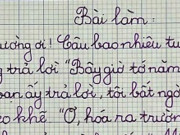 Bài làm:
ường ơi! Cậu bao nhiêu tu
trả lời "Bây giờ tớ năm
bạn ấy trả lời, tôi bật ngờ
khẽ "Ơ, hóa ra trườn